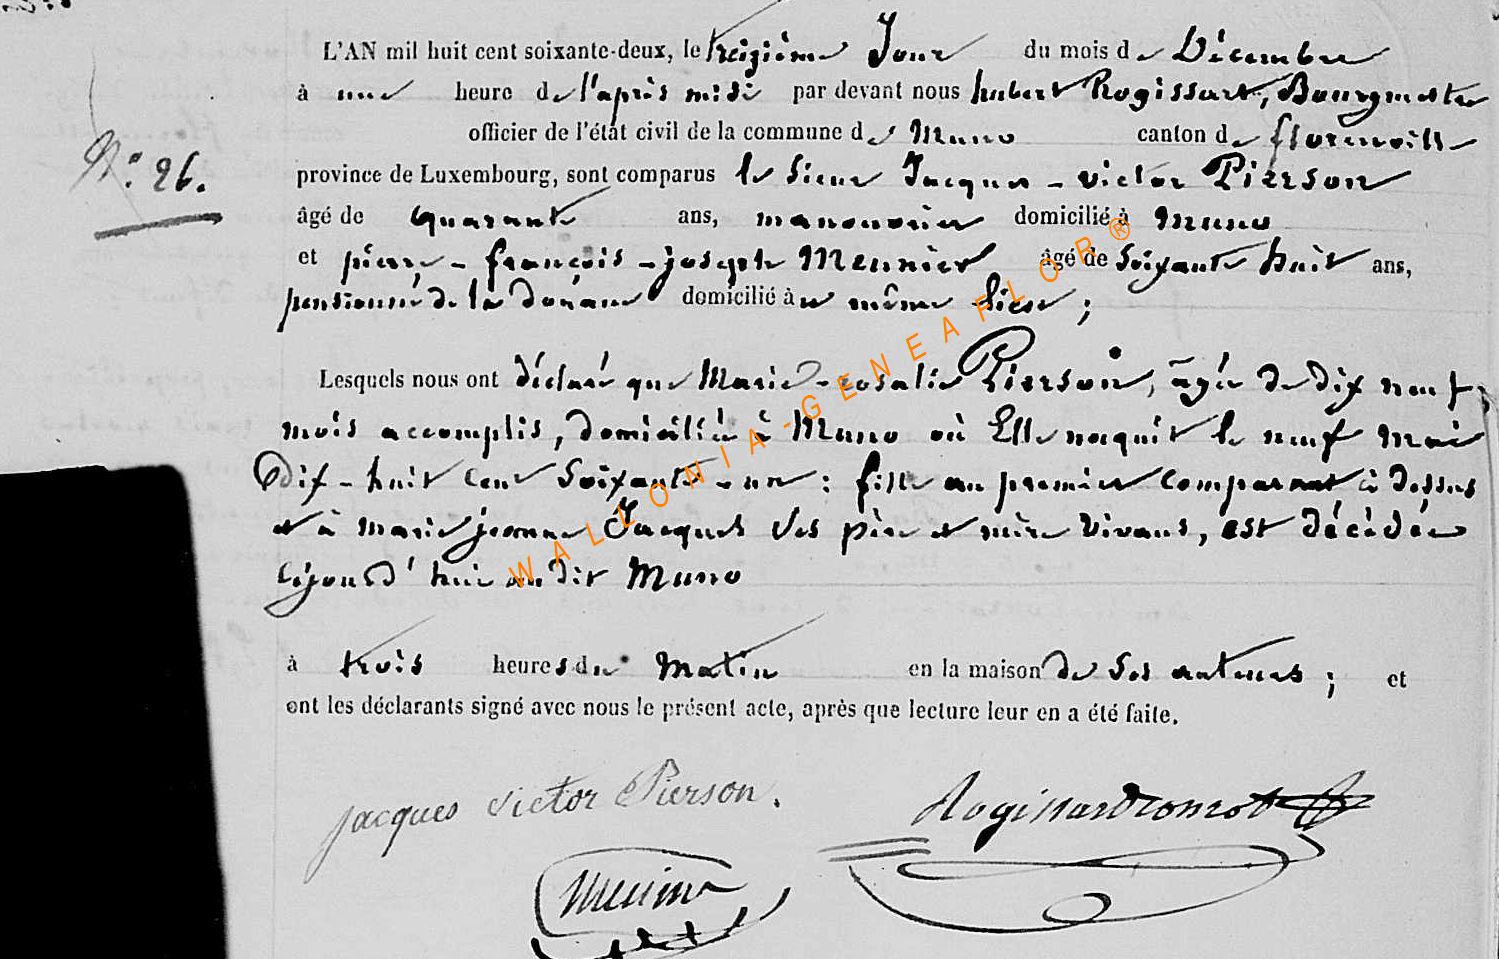 L'AN mil huit cent soixante-deux, le treizième Jour du mois de Décembre
à une heure de l'après midi par devant nous hubert Rogissart, Bourgmestre
officier de l'état civil de la commune de Muno canton de florenville
N.° 26.
province de Luxembourg, sont comparus le Sieur Jacques - victor Pierson
âgé de quarante ans, manouvrier domicilié à Muno
et pierre - françois - joseph Meunier âgé de Soixante huit ans,
pensionné de la douane domicilié à u même lieu ;
Lesquels nous ont déclaré que Marie - rosalie Pierson, âgée de dix neuf
mois accomplis, domiciliée à Muno où Elle naquit le neuf Mai
Dix - huit cent Soixante - un : fille au premier Comparant ci dessus
et à Marie jeanne Jacques Ses père et mère vivans, est décédée
cejourd'hui au dit Muno
à trois heures du Matin en la maison de Ses auteurs ; et
ont les déclarants signé avec nous le présent acte, après que lecture leur en a été faite.
jacques victor Pierson.
Rogissart
Meunier
WALLONIA-GENEAFLOR®